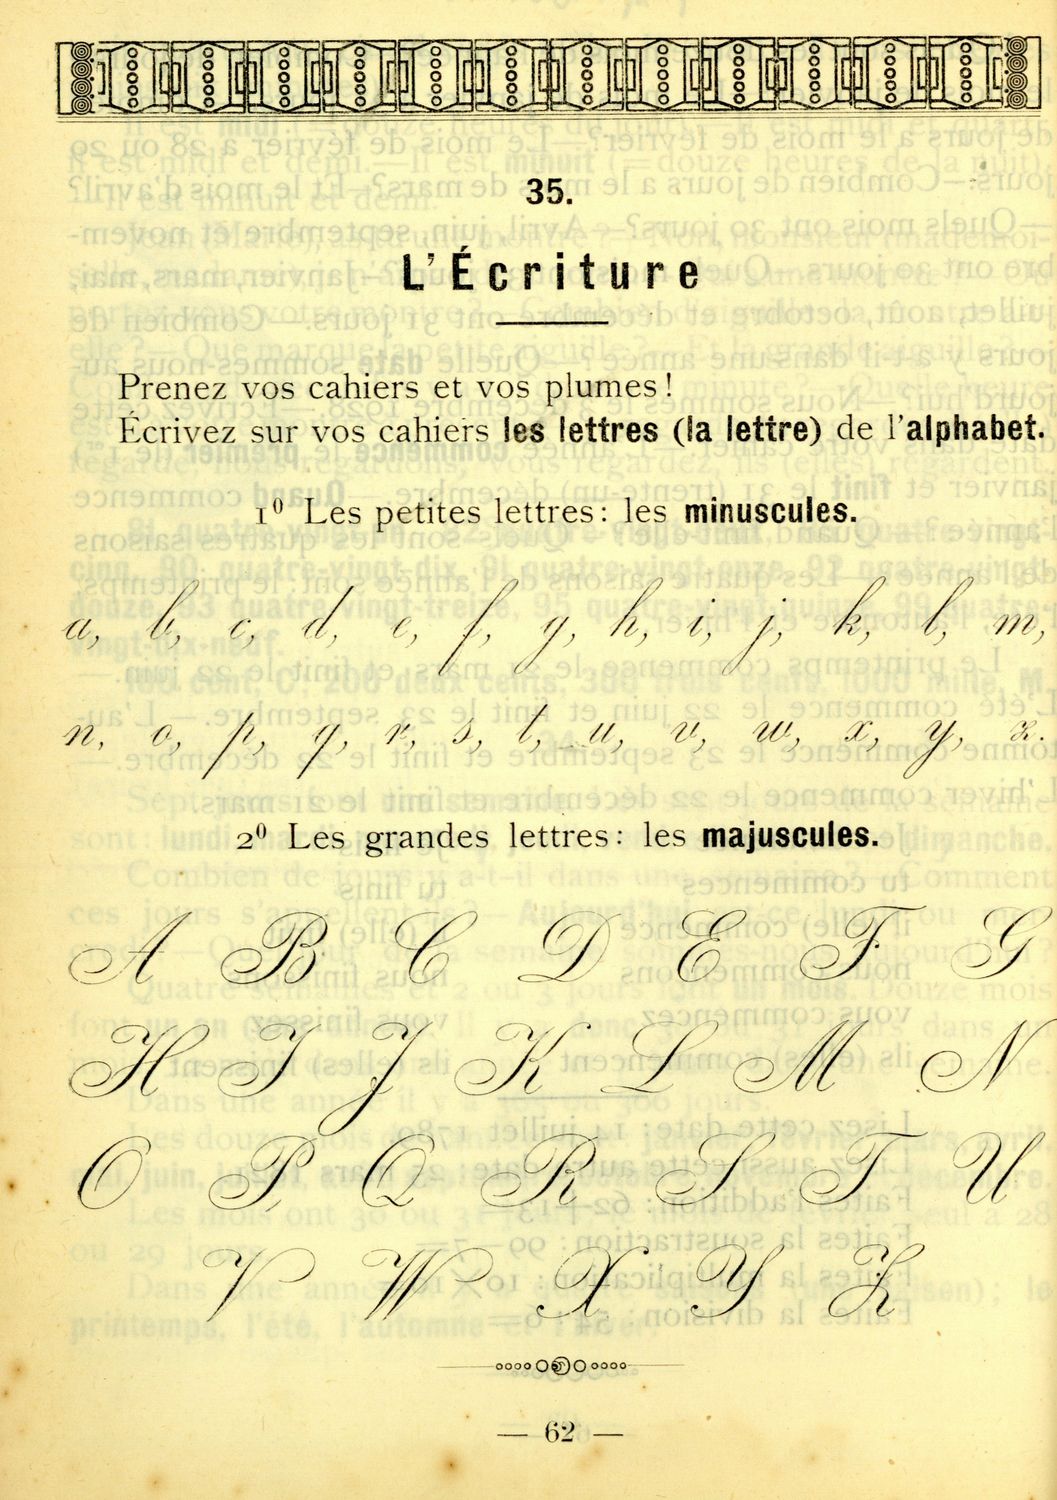 35.
L'Écriture
Prenez vos cahiers et vos plumes!
Écrivez sur vos cahiers les lettres (la lettre) de l'alphabet.
1⁰ Les petites lettres: les minuscules.
a, b, c, d, e, f, g, h, i, j, k, l, m,
n, o, p, q, r, s, t, u, v, w, x, y, z.
2⁰ Les grandes lettres: les majuscules.
A B C D E F G
H I J K L M N
O P Q R S T U
V W X Y Z
— 62 —